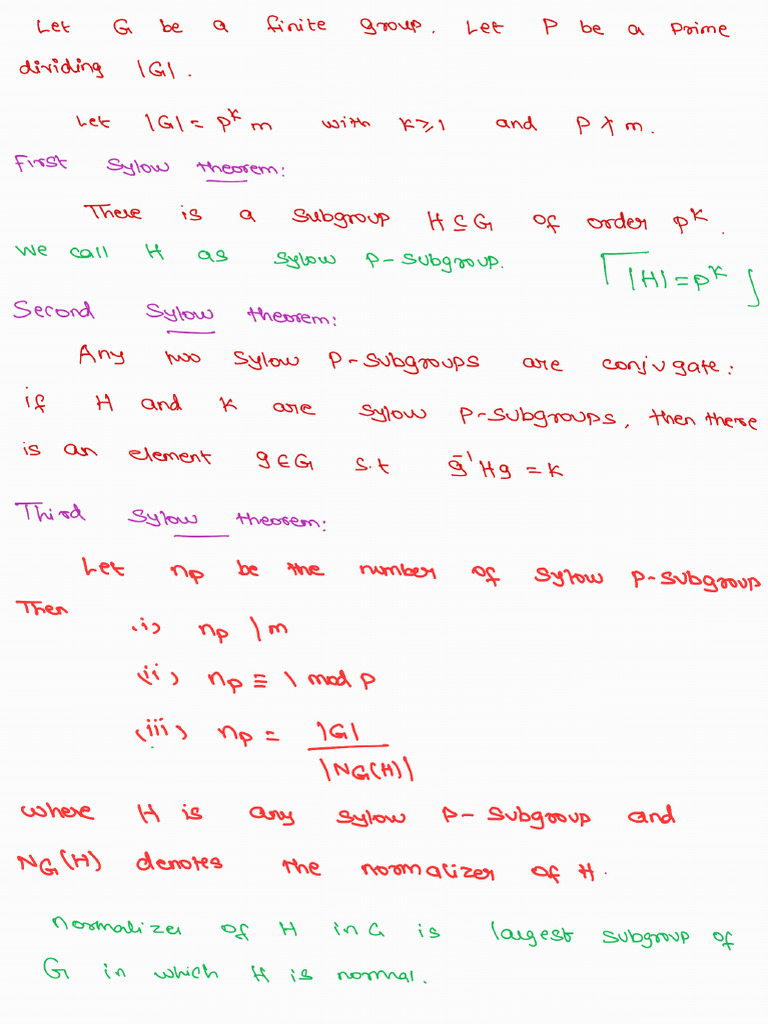 Let G be a finite group. Let P be a prime
dividing |G|.
Let |G| = p^k m with k ≥ 1 and p ∤ m.
First Sylow theorem:
There is a subgroup H ⊆ G of order p^k.
We call H as sylow p-subgroup. |H| = p^k
Second Sylow theorem:
Any two sylow p-subgroups are conjugate:
if H and K are sylow p-subgroups, then there
is an element g ∈ G s.t g^-1 H g = K
Third Sylow theorem:
Let n_p be the number of sylow p-subgroup
Then
(i) n_p | m
(ii) n_p ≡ 1 mod p
(iii) n_p = |G| / |N_G(H)|
where H is any sylow p-subgroup and
N_G(H) denotes the normalizer of H.
normalizer of H in G is largest subgroup of
G in which H is normal.